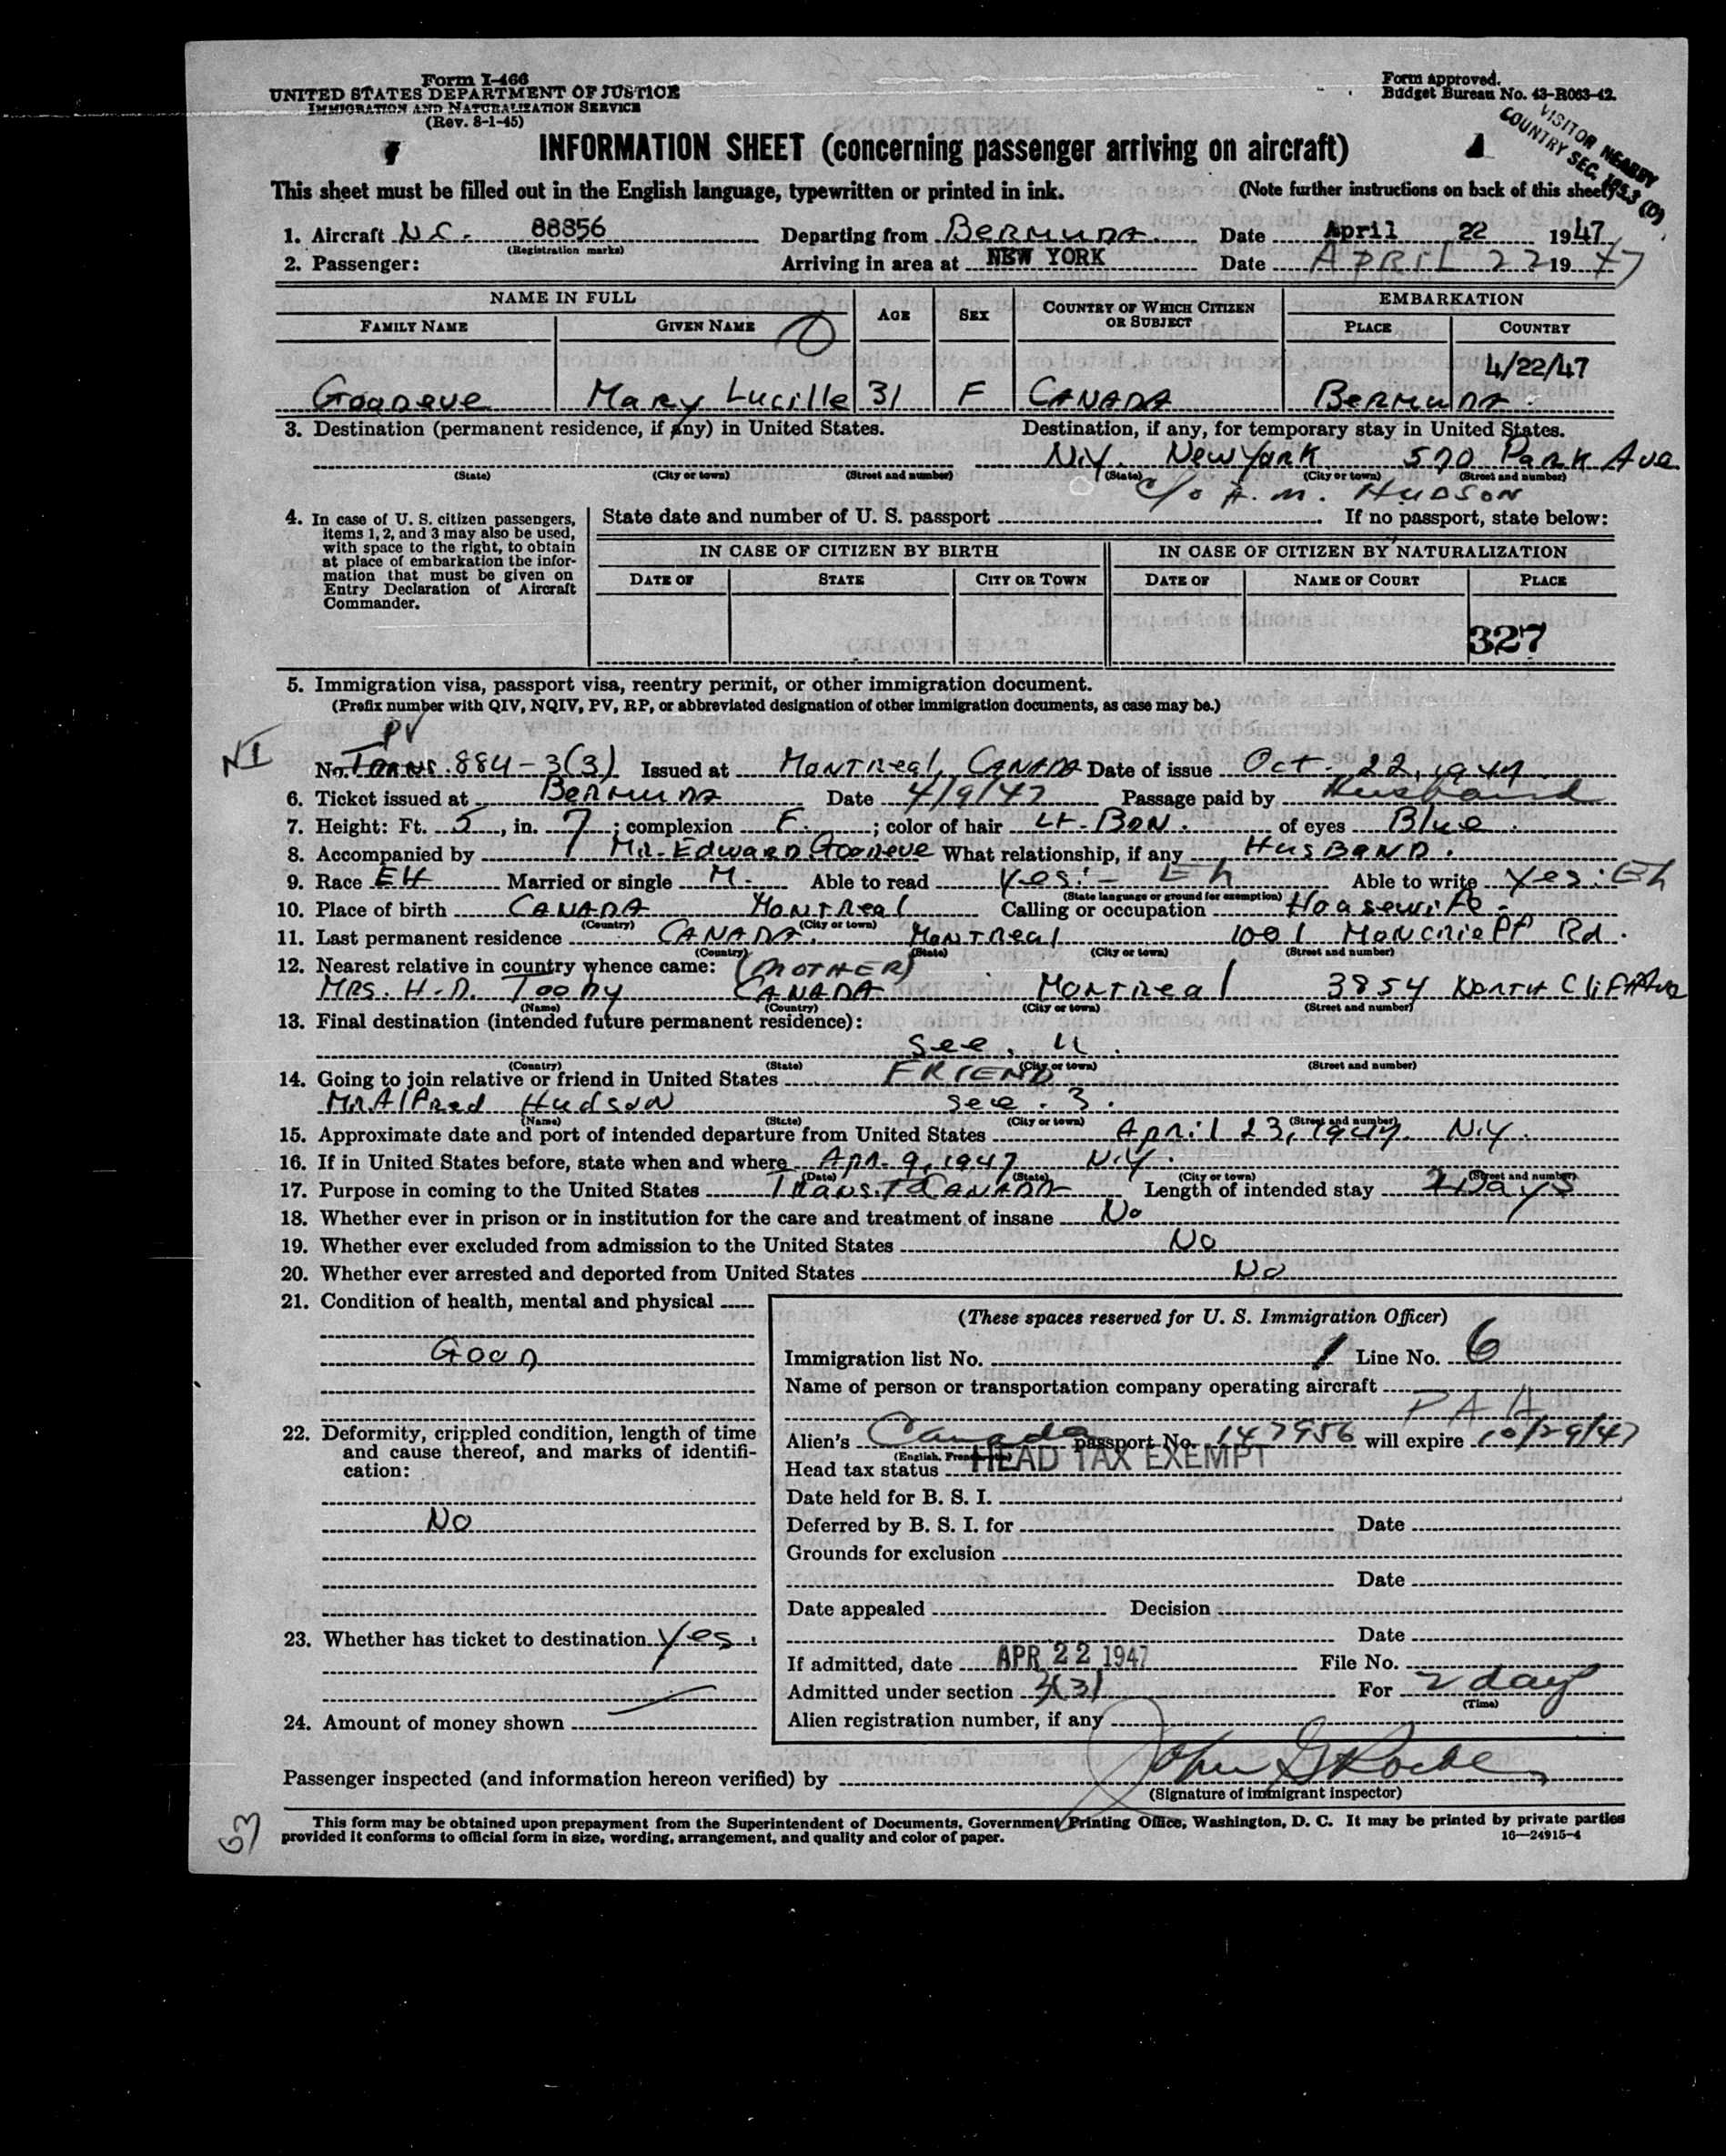 Form I-466
UNITED STATES DEPARTMENT OF JUSTICE
IMMIGRATION AND NATURALIZATION SERVICE
(Rev. 8-1-45)
Form approved.
Budget Bureau No. 43-R063-42.
VISITOR NEARBY
COUNTRY SEC.
INFORMATION SHEET (concerning passenger arriving on aircraft)
This sheet must be filled out in the English language, typewritten or printed in ink. (Note further instructions on back of this sheet)
1. Aircraft N.C. 88856 Departing from BERMUDA. Date April 22 1947
(Registration marks)
2. Passenger: Arriving in area at NEW YORK Date APRIL 22 1947
NAME IN FULL AGE SEX COUNTRY OF WHICH CITIZEN OR SUBJECT EMBARKATION
FAMILY NAME GIVEN NAME PLACE COUNTRY
4/22/47
Goodeve Mary Lucille 31 F CANADA BERMUDA.
3. Destination (permanent residence, if any) in United States. Destination, if any, for temporary stay in United States.
N.Y. New York 570 Park Ave
(State) (City or town) (Street and number) (State) (City or town) (Street and number)
c/o A. M. HUDSON
4. In case of U. S. citizen passengers, items 1, 2, and 3 may also be used, with space to the right, to obtain at place of embarkation the information that must be given on Entry Declaration of Aircraft Commander.
State date and number of U. S. passport If no passport, state below:
IN CASE OF CITIZEN BY BIRTH IN CASE OF CITIZEN BY NATURALIZATION
DATE OF STATE CITY OR TOWN DATE OF NAME OF COURT PLACE
327
5. Immigration visa, passport visa, reentry permit, or other immigration document.
(Prefix number with QIV, NQIV, PV, RP, or abbreviated designation of other immigration documents, as case may be.)
PV
NI
No. Trans. 884-3(3) Issued at Montreal, CANADA Date of issue Oct. 22, 1947.
6. Ticket issued at Bermuda Date 4/9/47 Passage paid by Husband
7. Height: Ft. 5, in. 7; complexion F.; color of hair Lt-BDN. of eyes Blue.
8. Accompanied by Mr. Edward Goodeve What relationship, if any HUSBAND.
9. Race EH Married or single M. Able to read Yes:- Eh Able to write Yes: Eh
(State language or ground for exemption)
10. Place of birth CANADA Montreal Calling or occupation Housewife.
(Country) (City or town)
11. Last permanent residence CANADA. Montreal 1001 Moncrieff Rd.
(Country) (State) (City or town) (Street and number)
12. Nearest relative in country whence came: (MOTHER)
MRS. H.D. Toohy CANADA Montreal 3854 North Clif Ave
(Name) (Country) (City or town) (Street and number)
13. Final destination (intended future permanent residence):
See. 11.
(Country) (State) (City or town) (Street and number)
14. Going to join relative or friend in United States FRIEND
Mr. Alfred Hudson See. 3.
(Name) (State) (City or town) (Street and number)
15. Approximate date and port of intended departure from United States April 23, 1947. N.Y.
16. If in United States before, state when and where Apr. 9, 1947 N.Y.
(Date) (State) (City or town) (Street and number)
17. Purpose in coming to the United States Trans. To CANADA Length of intended stay 2 Days
18. Whether ever in prison or in institution for the care and treatment of insane No
19. Whether ever excluded from admission to the United States No
20. Whether ever arrested and deported from United States No
21. Condition of health, mental and physical
Good
22. Deformity, crippled condition, length of time and cause thereof, and marks of identification:
No
23. Whether has ticket to destination Yes.
24. Amount of money shown
(These spaces reserved for U. S. Immigration Officer)
Immigration list No. 1 Line No. 6
Name of person or transportation company operating aircraft
PAA
Alien's Canada passport No. 147956 will expire 10/29/47
Head tax status HEAD TAX EXEMPT
Date held for B. S. I.
Deferred by B. S. I. for Date
Grounds for exclusion
Date
Date appealed Decision
Date
If admitted, date APR 22 1947 File No.
Admitted under section 3(3) For 2 day
(Time)
Alien registration number, if any
Passenger inspected (and information hereon verified) by John G Roche
(Signature of immigrant inspector)
63
This form may be obtained upon prepayment from the Superintendent of Documents, Government Printing Office, Washington, D. C. It may be printed by private parties
provided it conforms to official form in size, wording, arrangement, and quality and color of paper. 16—24915-4